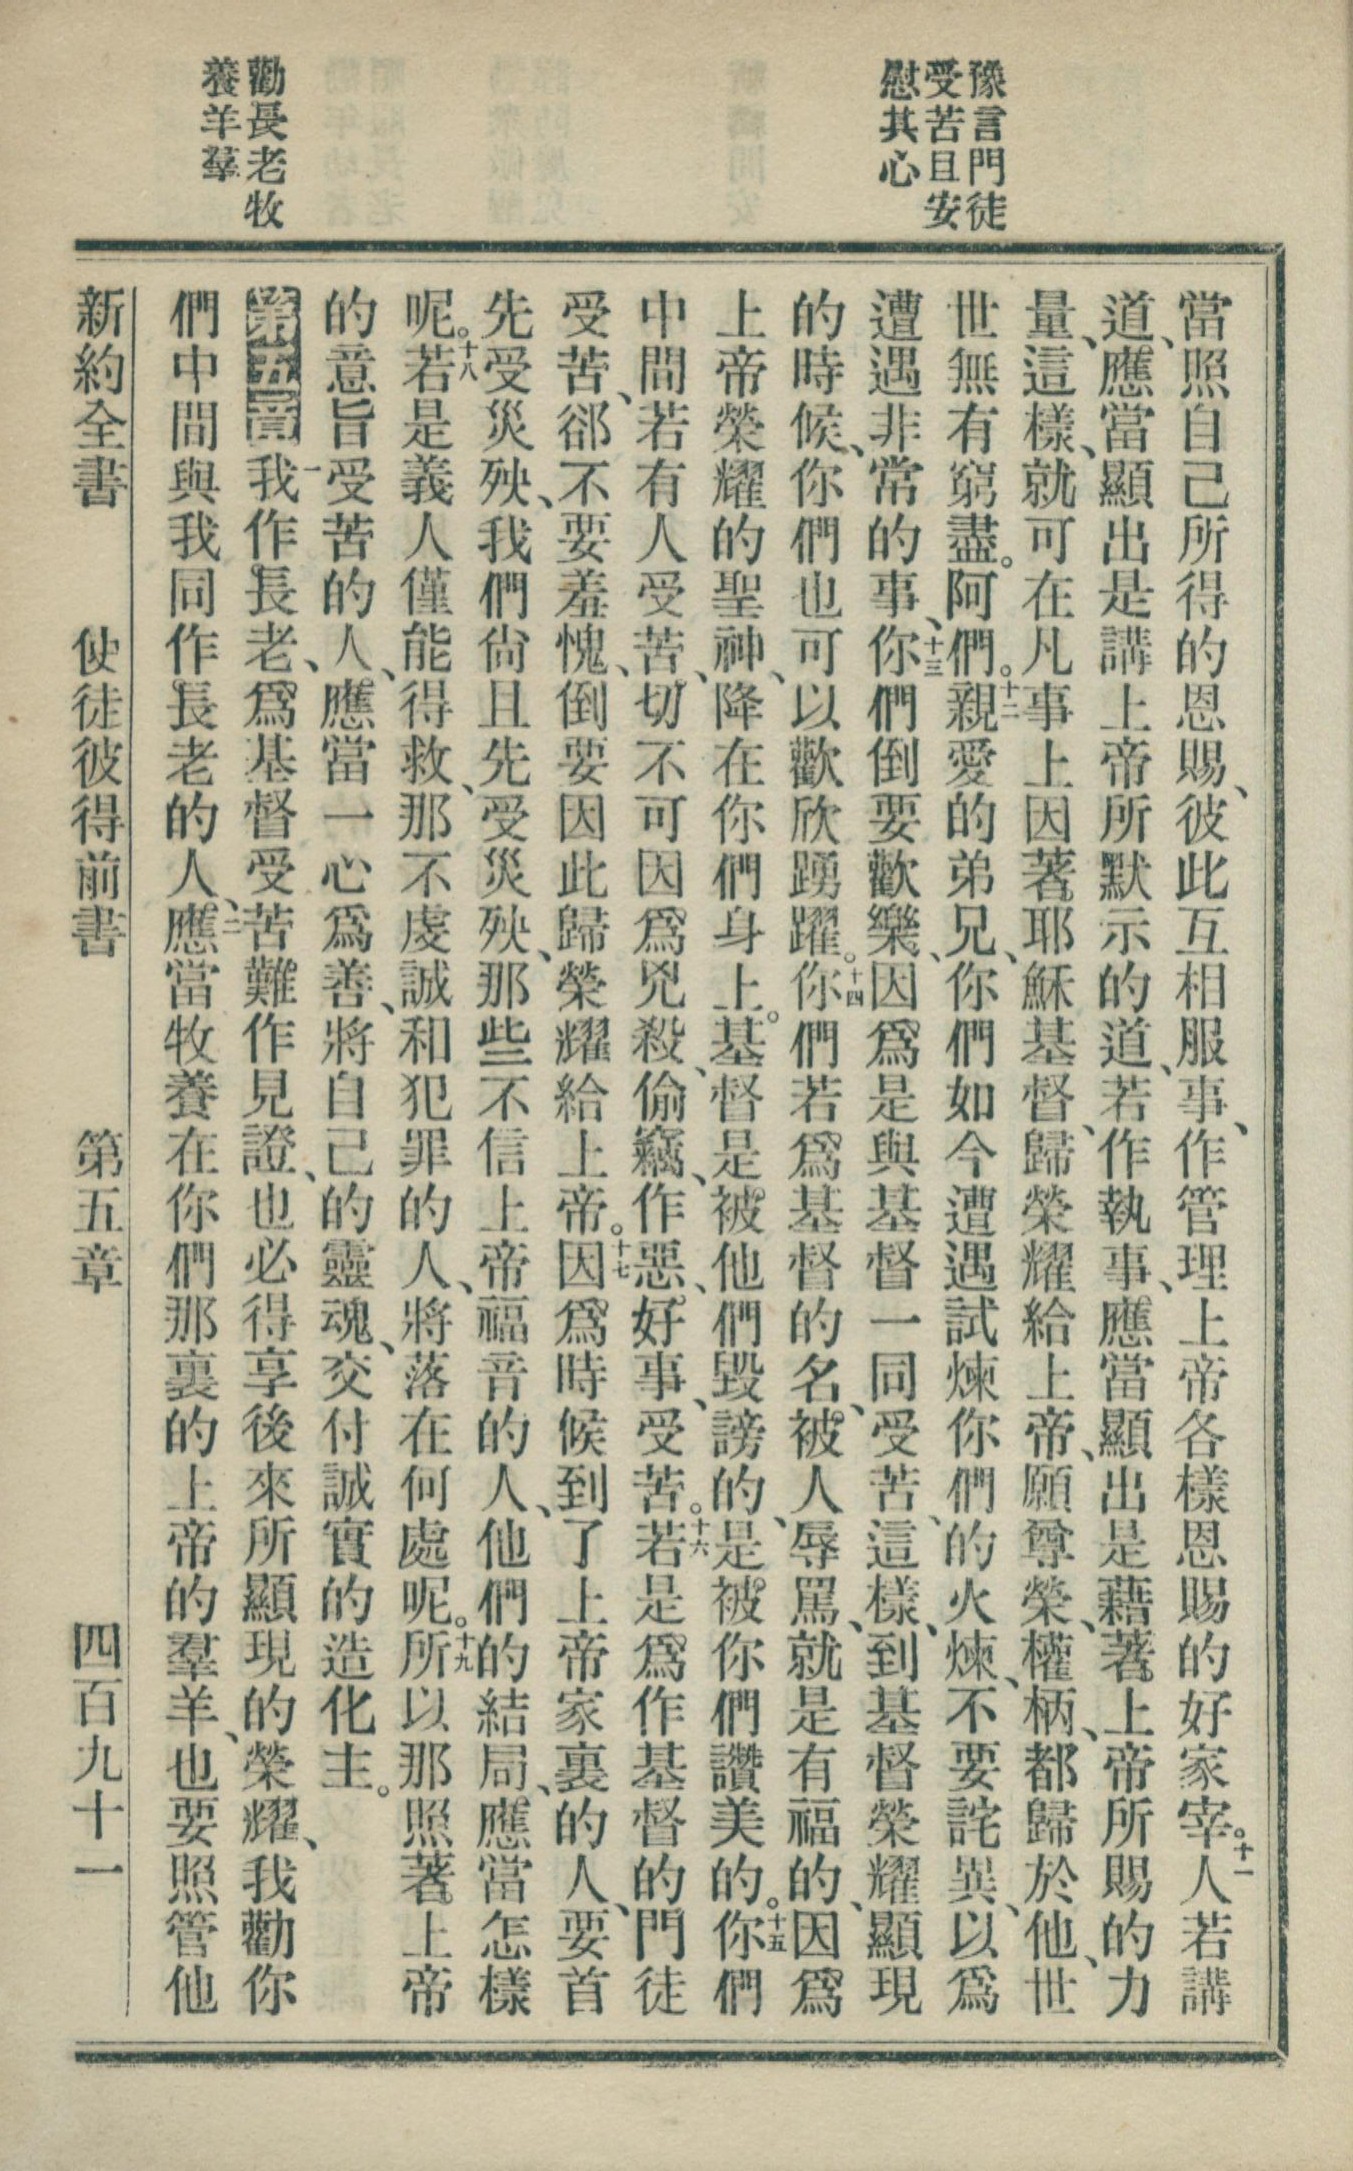 豫言門徒
受苦且安
慰其心
勸長老牧
養羊羣
當照自己所得的恩賜、彼此互相服事、作管理上帝各樣恩賜的好家宰。十一人若講
道、應當顯出是講上帝所默示的道、若作執事、應當顯出是藉著上帝所賜的力
量、這樣、就可在凡事上因著耶穌基督、歸榮耀給上帝、願尊榮、權柄、都歸於他、世
世無有窮盡。阿們。十二親愛的弟兄、你們如今遭遇試煉你們的火煉、不要詫異、以爲
遭遇非常的事、十三你們倒要歡樂、因爲是與基督一同受苦、這樣、到基督榮耀顯現
的時候、你們也可以歡欣踴躍。十四你們若爲基督的名、被人辱罵、就是有福的、因爲
上帝榮耀的聖神、降在你們身上。基督是被他們毀謗的、是被你們讚美的。十五你們
中間若有人受苦、切不可因爲兇殺、偷竊、作惡、好事、受苦。十六若是爲作基督的門徒
受苦、郤不要羞愧、倒要因此歸榮耀給上帝。十七因爲時候到了上帝家裏的人、要首
先受災殃、我們尙且先受災殃、那些不信上帝福音的人、他們的結局、應當怎樣
呢。十八若是義人僅能得救、那不虔誠和犯罪的人、將落在何處呢。十九所以那照著上帝
的意旨受苦的人、應當一心爲善、將自己的靈魂、交付誠實的造化主。
第五章一我作長老、爲基督受苦難作見證、也必得享後來所顯現的榮耀、我勸你
們中間與我同作長老的人、二應當牧養在你們那裏的上帝的羣羊、也要照管他
新約全書 使徒彼得前書 第五章 四百九十一